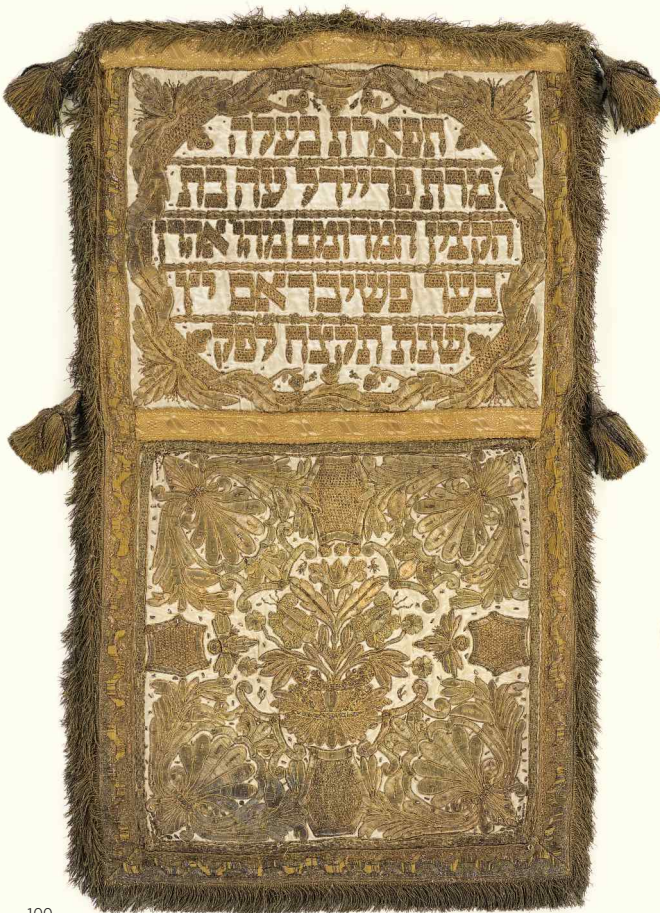 תפארת בעלה
מרת פריידל עה בת
הקצין המרומם מהו אהרן
בער פשיבראם יץ
שנת תקצח לפק
100